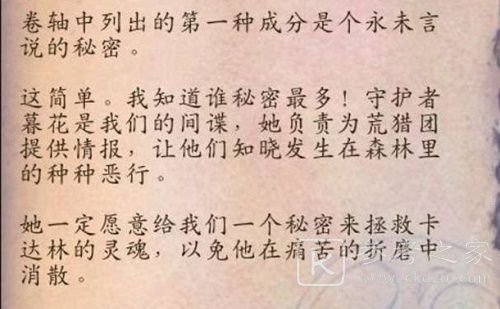 卷轴中列出的第一种成分是个永未言
说的秘密。
这简单。我知道谁秘密最多！守护者
暮花是我们的间谍，她负责为荒猎团
提供情报，让他们知晓发生在森林里
的种种恶行。
她一定愿意给我们一个秘密来拯救卡
达林的灵魂，以免他在痛苦的折磨中
消散。